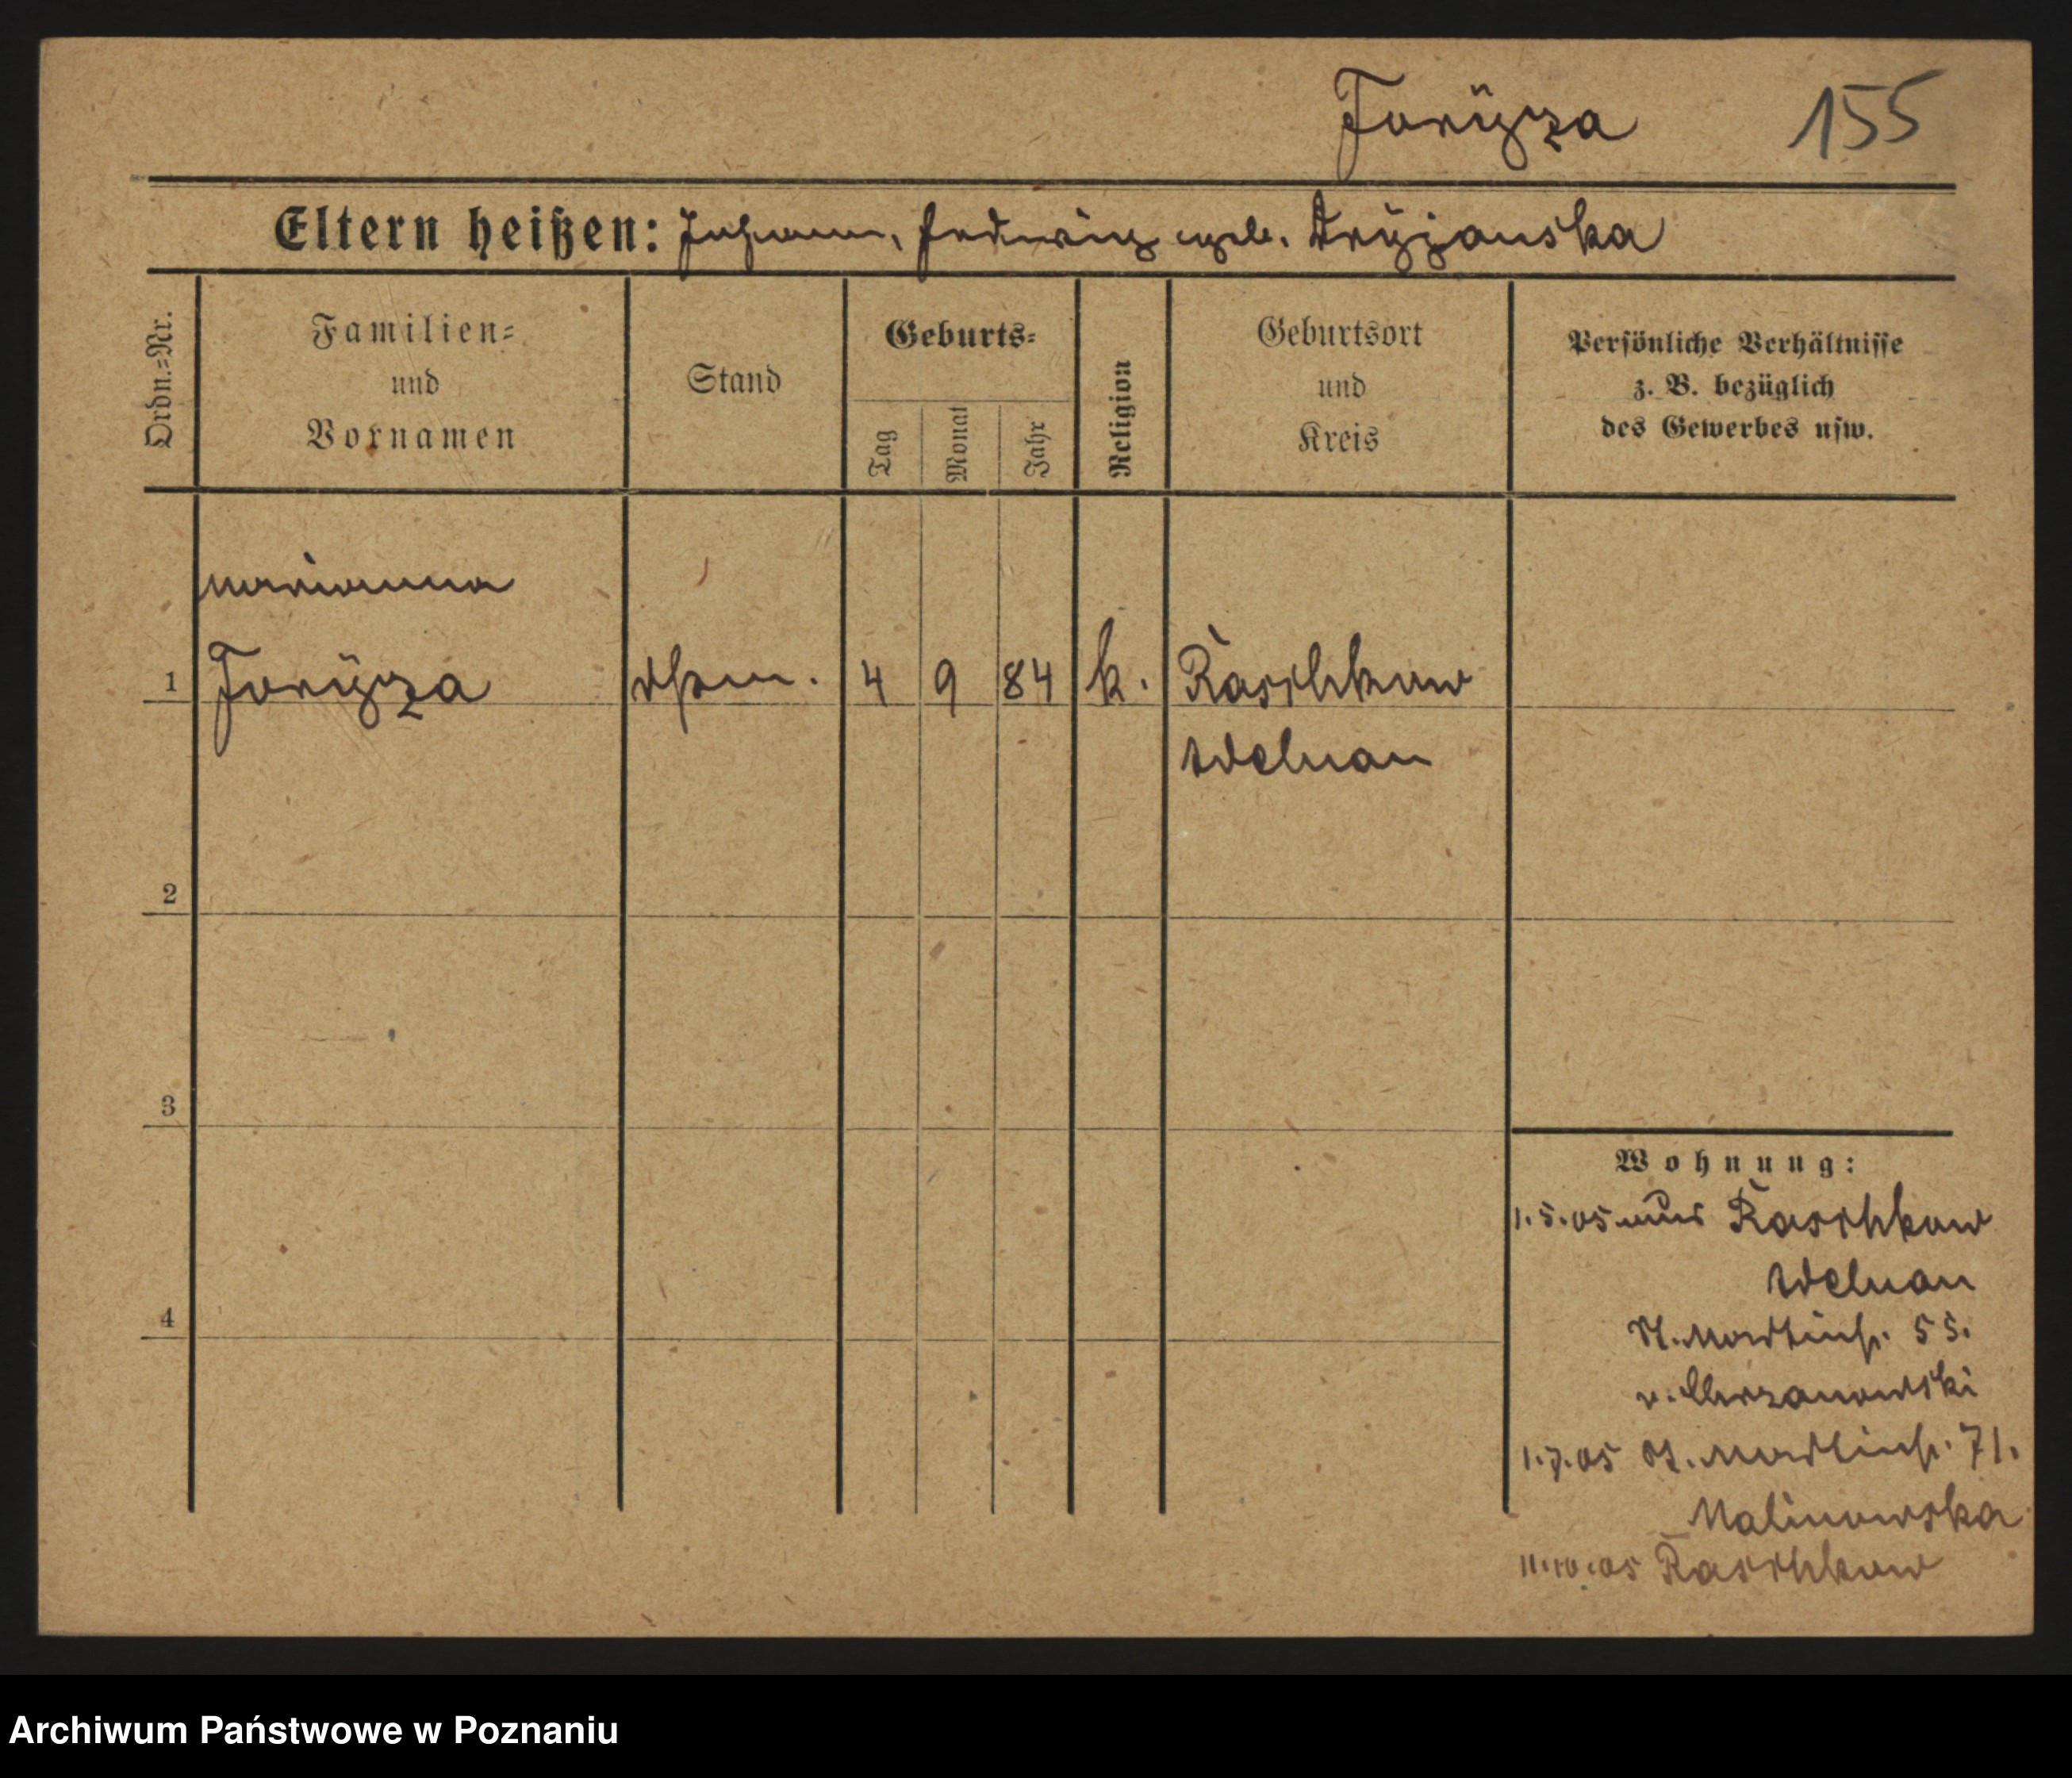 Foryẗza 155
Eltern heißen: Johann, Hedwig geb.
Ordn.=Nr.
Familien=
und
Vornamen
Stand
Geburts=
Tag
Monat
Jahr
Religion
Geburtsort
und
Kreis
Persönliche Verhältnisse
z. B. bezüglich
des Gewerbes usw.
Marianna
1 4 9 84 k. Raschkow
Adelnau
2
3
4
Wohnung:
1.5.05 aus Raschkow
Adelnau
St. Martinstr. 55.
v. Chrzanowski
1.7.05 St. Martinstr. 71.
Malinowska
11.10.05 Raschkow
Archiwum Państwowe w Poznaniu